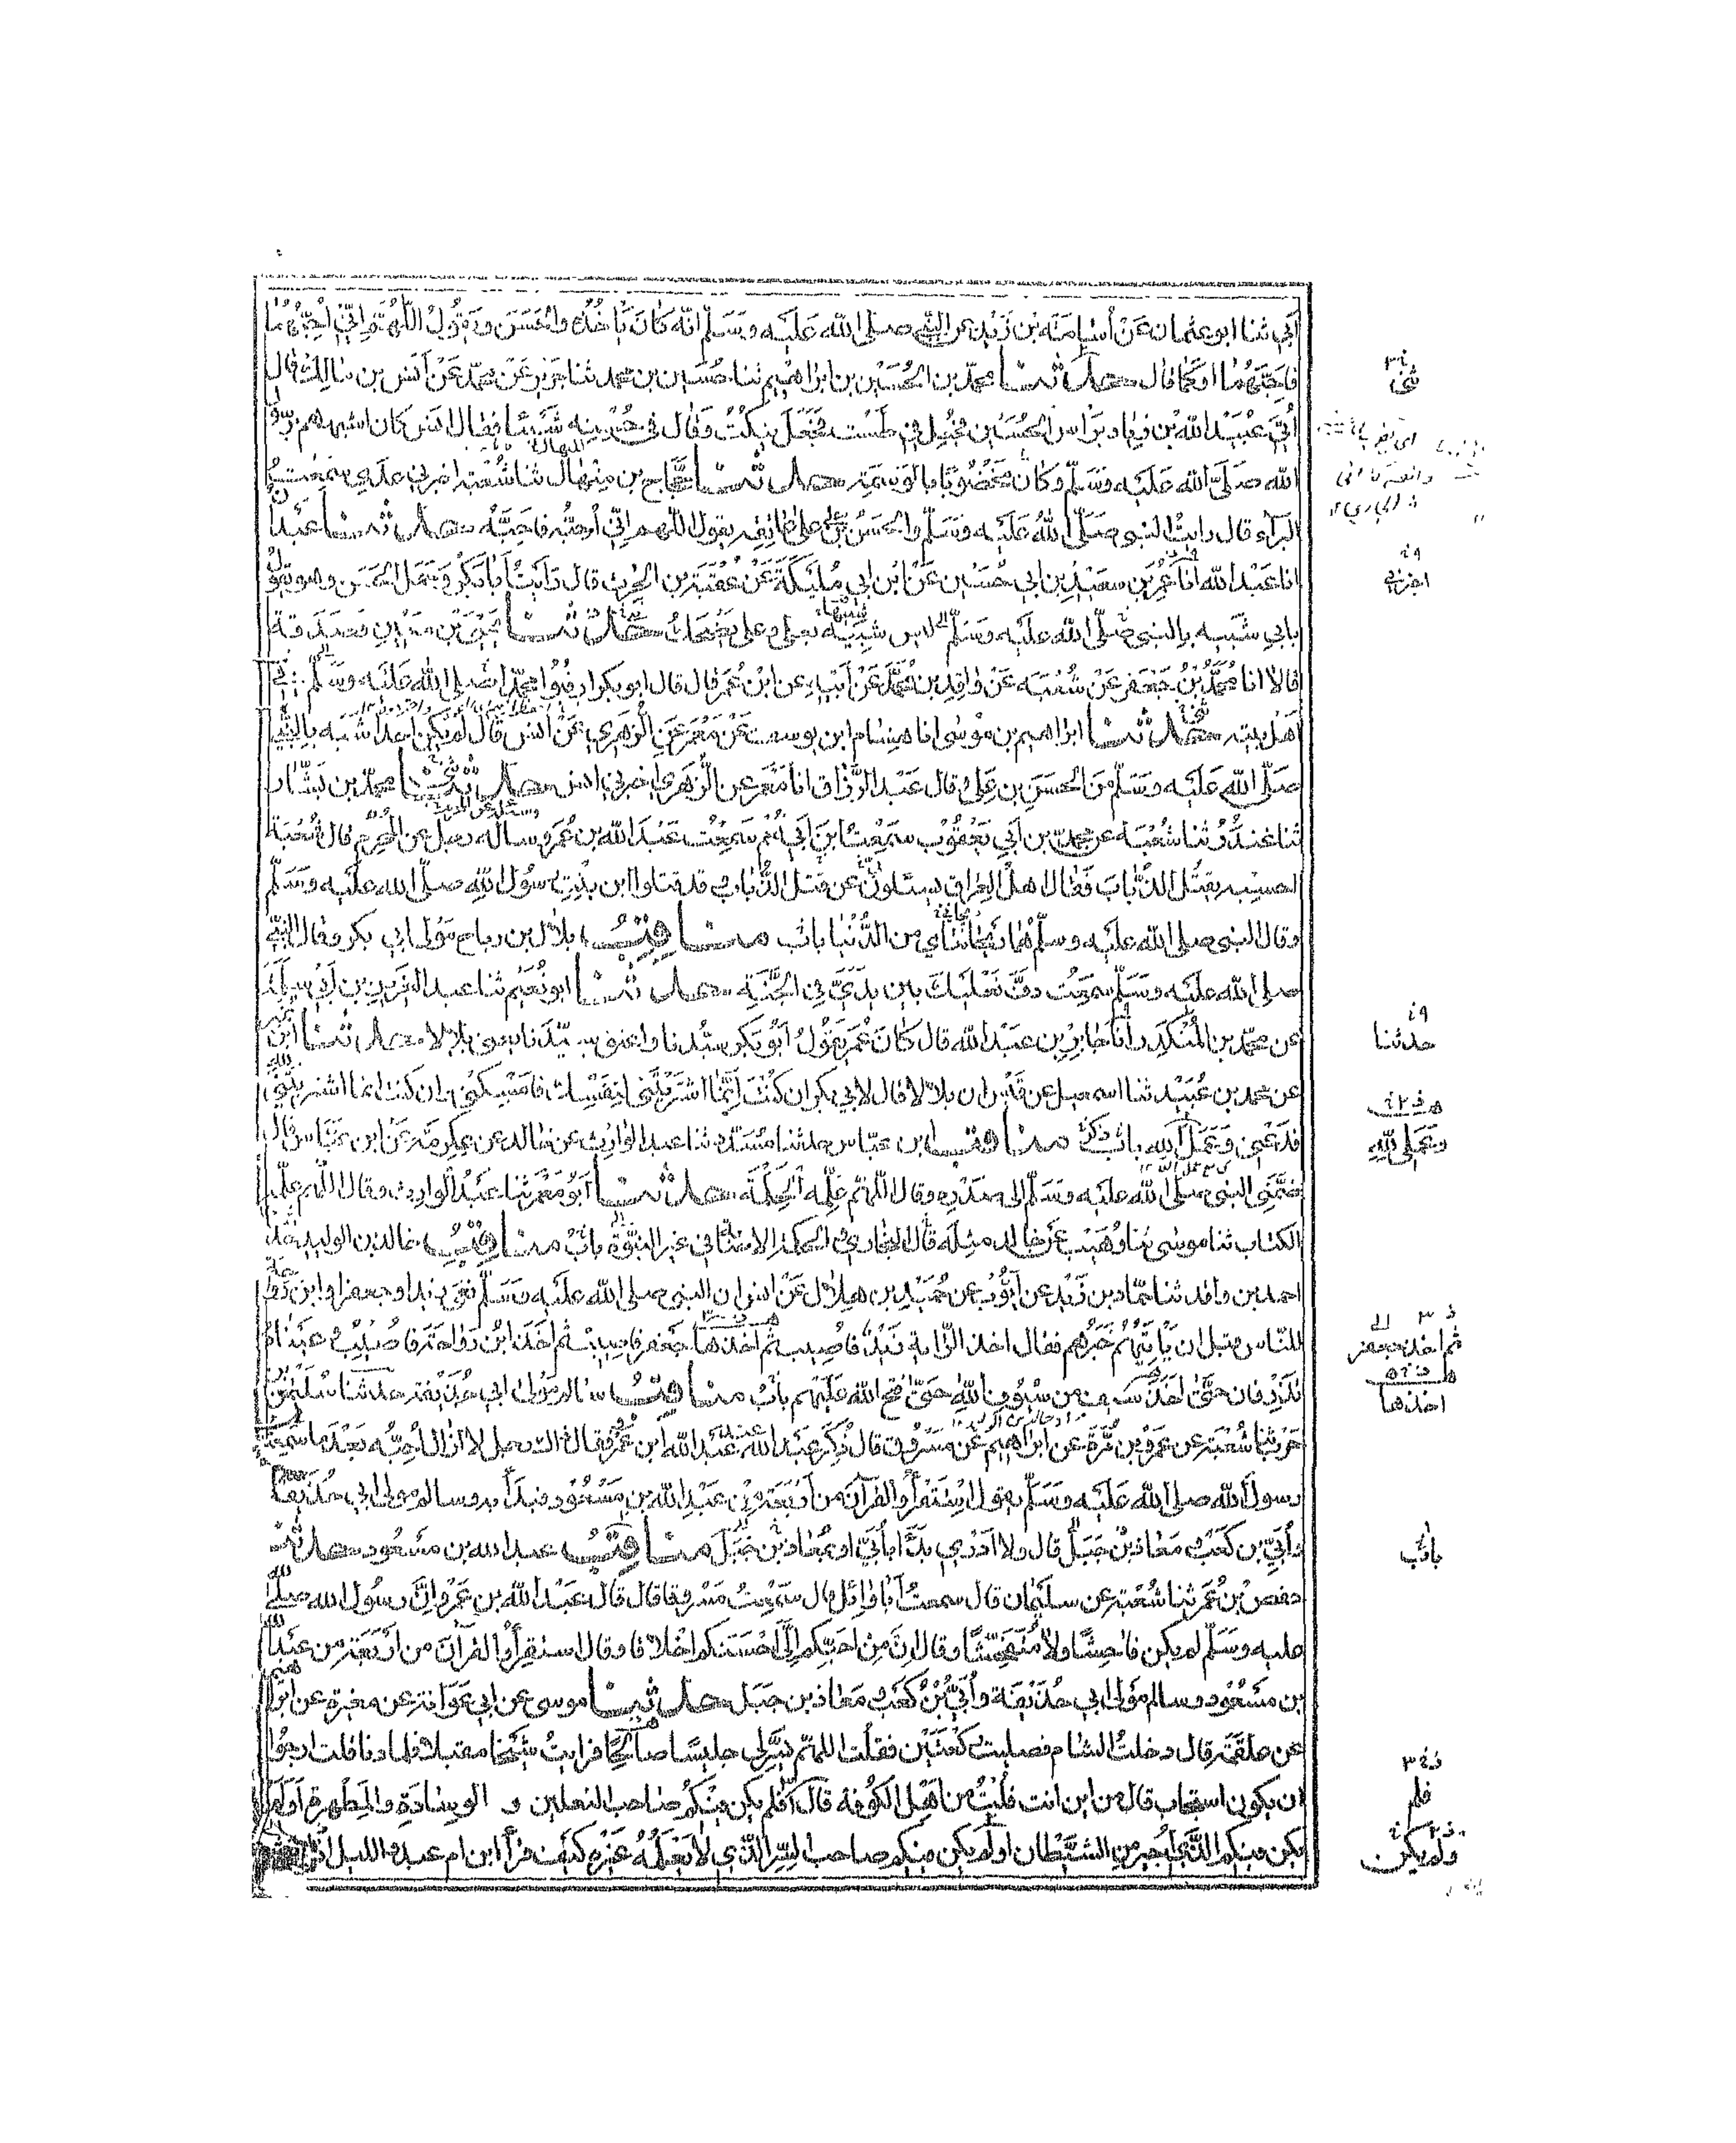 أبي ثنا ابو عثمان عَنْ أسامَة بن زَيْد عن النبي صلى الله عَلَيه وسَلّم انّه كَانَ يَأخُذُه والحَسَنَ ويَقُولُ اللّهُمّ إنّي أُحِبُّهُمَا
فاَحِبَّهُما اوكما قال حدثنا محمّد بن الحُسَيْن بن ابراهيم ثنا حُسَين بن محمد ثنا جرير عَنْ محمّد عَنْ أنَس بن مالك قال
أُتِيَ عُبَيْد الله بْن زياد براس الحُسَيْن فجُعِل في طَسْت فجَعَلَ ينكُتُ وقال في حُسْنِه شَيْئًا فقال انَس كان اشبههم برسول
الله صَلَّى الله عَلَيه وسَلّم وكان مَخْضُوبًا بالوَسِمَة حدثنا حَجّاج بن مِنْهال ثنا شُعْبَة اخبرني عَدِي سَمِعتُ
البَرَاء قال رايتُ النبي صَلّى اللهُ عَلَيه وسَلّم والحسَنُ بن علي على عاتِقِه يقول اللّهم إنّي أُحِبُّه فاَحِبَّه حدثنا عَبْدان
انا عَبْد الله انا عُمَر بن سعيْد بن ابي حُسَيْن عَن ابْن ابي مُلَيكَة عَنْ عُقْبَة بن الحٰرث قال رَأيتُ أبا بَكْر وحَمَل الحَسَن وهو يقول
بابي شَبيه بالنبي صَلّى الله عَلَيه وسَلّم ليس شَبيه بعلي وعلي يَضْحَك حدثنا يَحْيَى بن مَعِين وصَدَقة
قالا انا محمّدُ بْنُ جَعْفر عَنْ شُعْبَة عَنْ واقِد بن محمَّد عَنْ أبيه عن ابْن عُمَر قال قال ابو بكر ارقُبُوا محمّدًا صَلى الله عَلَيه وسَلّم في
أهل بيته حدثنا ابراهيم بن مُوسى انا هِشام ابن يوسف عَنْ مَعْمَر عَنِ الزهري عَنْ انَس قال لم يَكُن احد اشبَه بالنَّبي
صَلّى الله عَلَيه وسَلّم مِنَ الحسَنِ بن عَلي وقال عَبْد الرّزاق انا مَعْمَر عن الزّهري اخبرني انس حدثنا محمّد بن بَشّار
ثنا غندُر ثنا شُعْبَة عن محمّد بن ابي يَعْقُوب سمَعْتُ ابنَ أبي نُعْم سَمِعْت عَبْدَ الله بن عُمَر وساله رجل عن المُحْرِم قال شُعْبَة
احسبه يقتُل الذُّبابَ فقال اهلُ العراق يسئلون عن قتل الذُّباب وقد قتلوا ابن بنت رسُول الله صلّى الله عليه وسَلّم
وقال النبي صلى الله عليه وسلّم هُما رَيْحانَتاي من الدُّنْيا باب مناقِبُ بلال بن رباح مَوْلى ابي بكر وقال النبي
صلى الله عليه وسَلّم سَمِعْتُ دفَّ نَعْلَيكَ بين يدَيَّ في الجَنّة حدثنا ابو نُعَيْم ثنا عبد العَزيز بن أبي سلمة
عن محمّد بن المُنْكَدِر انا جابِرُ بن عبد الله قال كَانَ عُمَر يَقُولُ أبُو بَكر سيّدنا واعتق سيّدَنا يعني بلالا حدثنا ابن نمير
عن محمد بن عُبَيْد ثنا اسمعيل عن قَيْس ان بلالا قال لابي بكر ان كُنتَ إنّما اشْتَرَيْتَني لنفْسِك فامسِكني وان كنت انما اشتريتني لله
فدَعْني وعَمَل الله باب ذكر مناقب ابن عبّاس حدثنا مُسَدَّد ثنا عبد الوارث عن خالد عن عِكرِمَة عَن ابن عَبّاس قال
ضَمَّنِي النبي صلى الله عليه وسَلّم الى صَدْرِه وقال اللّهُمّ عَلِّمْه الحِكْمَةَ حدثنا أبُو مَعْمَر ثنا عَبْدُ الوارث وقال اللهم علّمه
الكتاب ثنا موسى ثنا وُهَيْب عَنْ خالد مثلَه قال البخاري والحكمة الاصابة في غير النبوّة باب مناقِبُ خالد بن الوليد حدثنا
احمد بن واقد ثنا حمّاد بن زَيْد عن أيُّوب عن حُمَيْد بن هِلال عَنْ انس ان النبي صلى الله عليه وسَلّم نعى زيدا وجعفرا وابن رواحة
للنّاس قبل ان يَأتيَهُم خَبَرُهم فقال اخذ الرّاية زَيْد فأُصِيب ثم اخذها جَعْفر فاصيب ثم اخَذ ابْن رواحَة فاُصِيْب وعيناه
تذرِفان حتّى اَخَذ سَيف من سُيُوف اللهِ حَتّى فتح الله عَلَيْهِم باب مناقِبُ سالم مَوْلى ابي حُذَيْفة حدثنا سُلَيْمٰنُ بن
حَرْب ثنا شُعْبَة عن عَمْرو بن مُرَّة عن ابراهيم عَنْ مَسْرُوق قال ذُكِرَ عَبْد الله عند عَبْد الله ابن عَمْرو فقال ذاك رجل لا ازال اُحِبُّه بَعْد ما سَمِعْتُ
رسولَ الله صلى الله عَلَيه وسَلّم يقول اسْتَقْرِءُوا القراٰنَ من أربَعَة مِنْ عَبْد الله بن مَسْعُود فبَدأ به وسالم مولى ابي حُذَيفة
وأُبَيّ بن كَعْب ومَعاذ بْنِ جَبَل قال ولا أدْرِي بَدَأ بأُبَيّ او بمُعاذ بْن جَبَل مناقِبُ عبد الله بن مسْعُود حدثنا
حفصُ بْنُ عُمَر ثنا شُعْبَة عن سليمان قال سمعتُ أبا وائل قال سَمِعْتُ مَسْروقا قال قال عَبْدُ الله بن عَمْرو إنَّ رسُول الله صلى الله
عليه وسَلّم لم يكن فاحِشًا ولا مُتَفَحِّشًا وقال إنَّ مِنْ احبِّكم إليَّ احْسَنَكم اخْلاقا وقال استقرِءُوا القراٰنَ من أرْبَعَة مِن عَبْد الله
بن مسْعُود وسالم مَولى ابي حُذَيْفة وأُبَيّ بْنِ كَعْب ومَعاذ بن جَبَل حدثنا موسى عن ابي عَوَانة عن مغيرة عن ابراهيم
عن علقمة قال دخلتُ الشام فصليت ركعَتَيْن فقُلْت اللهم يَسِّر لي جليسًا صالحًا فرايتُ شَيْخا مقبلا فلما دنا قلت ارجوا
ان يكون استجاب قال من اين انت قُلْتُ من أهْلِ الكوفة قال أفلم يكن فيْكُم صَاحب النعلين و الوِسادَة والمِطْهرة أولَمْ
يكن فيكم الَّذي أُجِير مِن الشَّيْطان أولَم يكن فيكم صاحب السِّرِّ الذي لا يَعْلَمُهُ غَيْره كَيْف قرأ ابن ام عبد والليل
ثنى
اخبرني
حدثنا
وعملى لله
ثم اخذ جعفر
اخذها
باب
فلم
ولم يكن